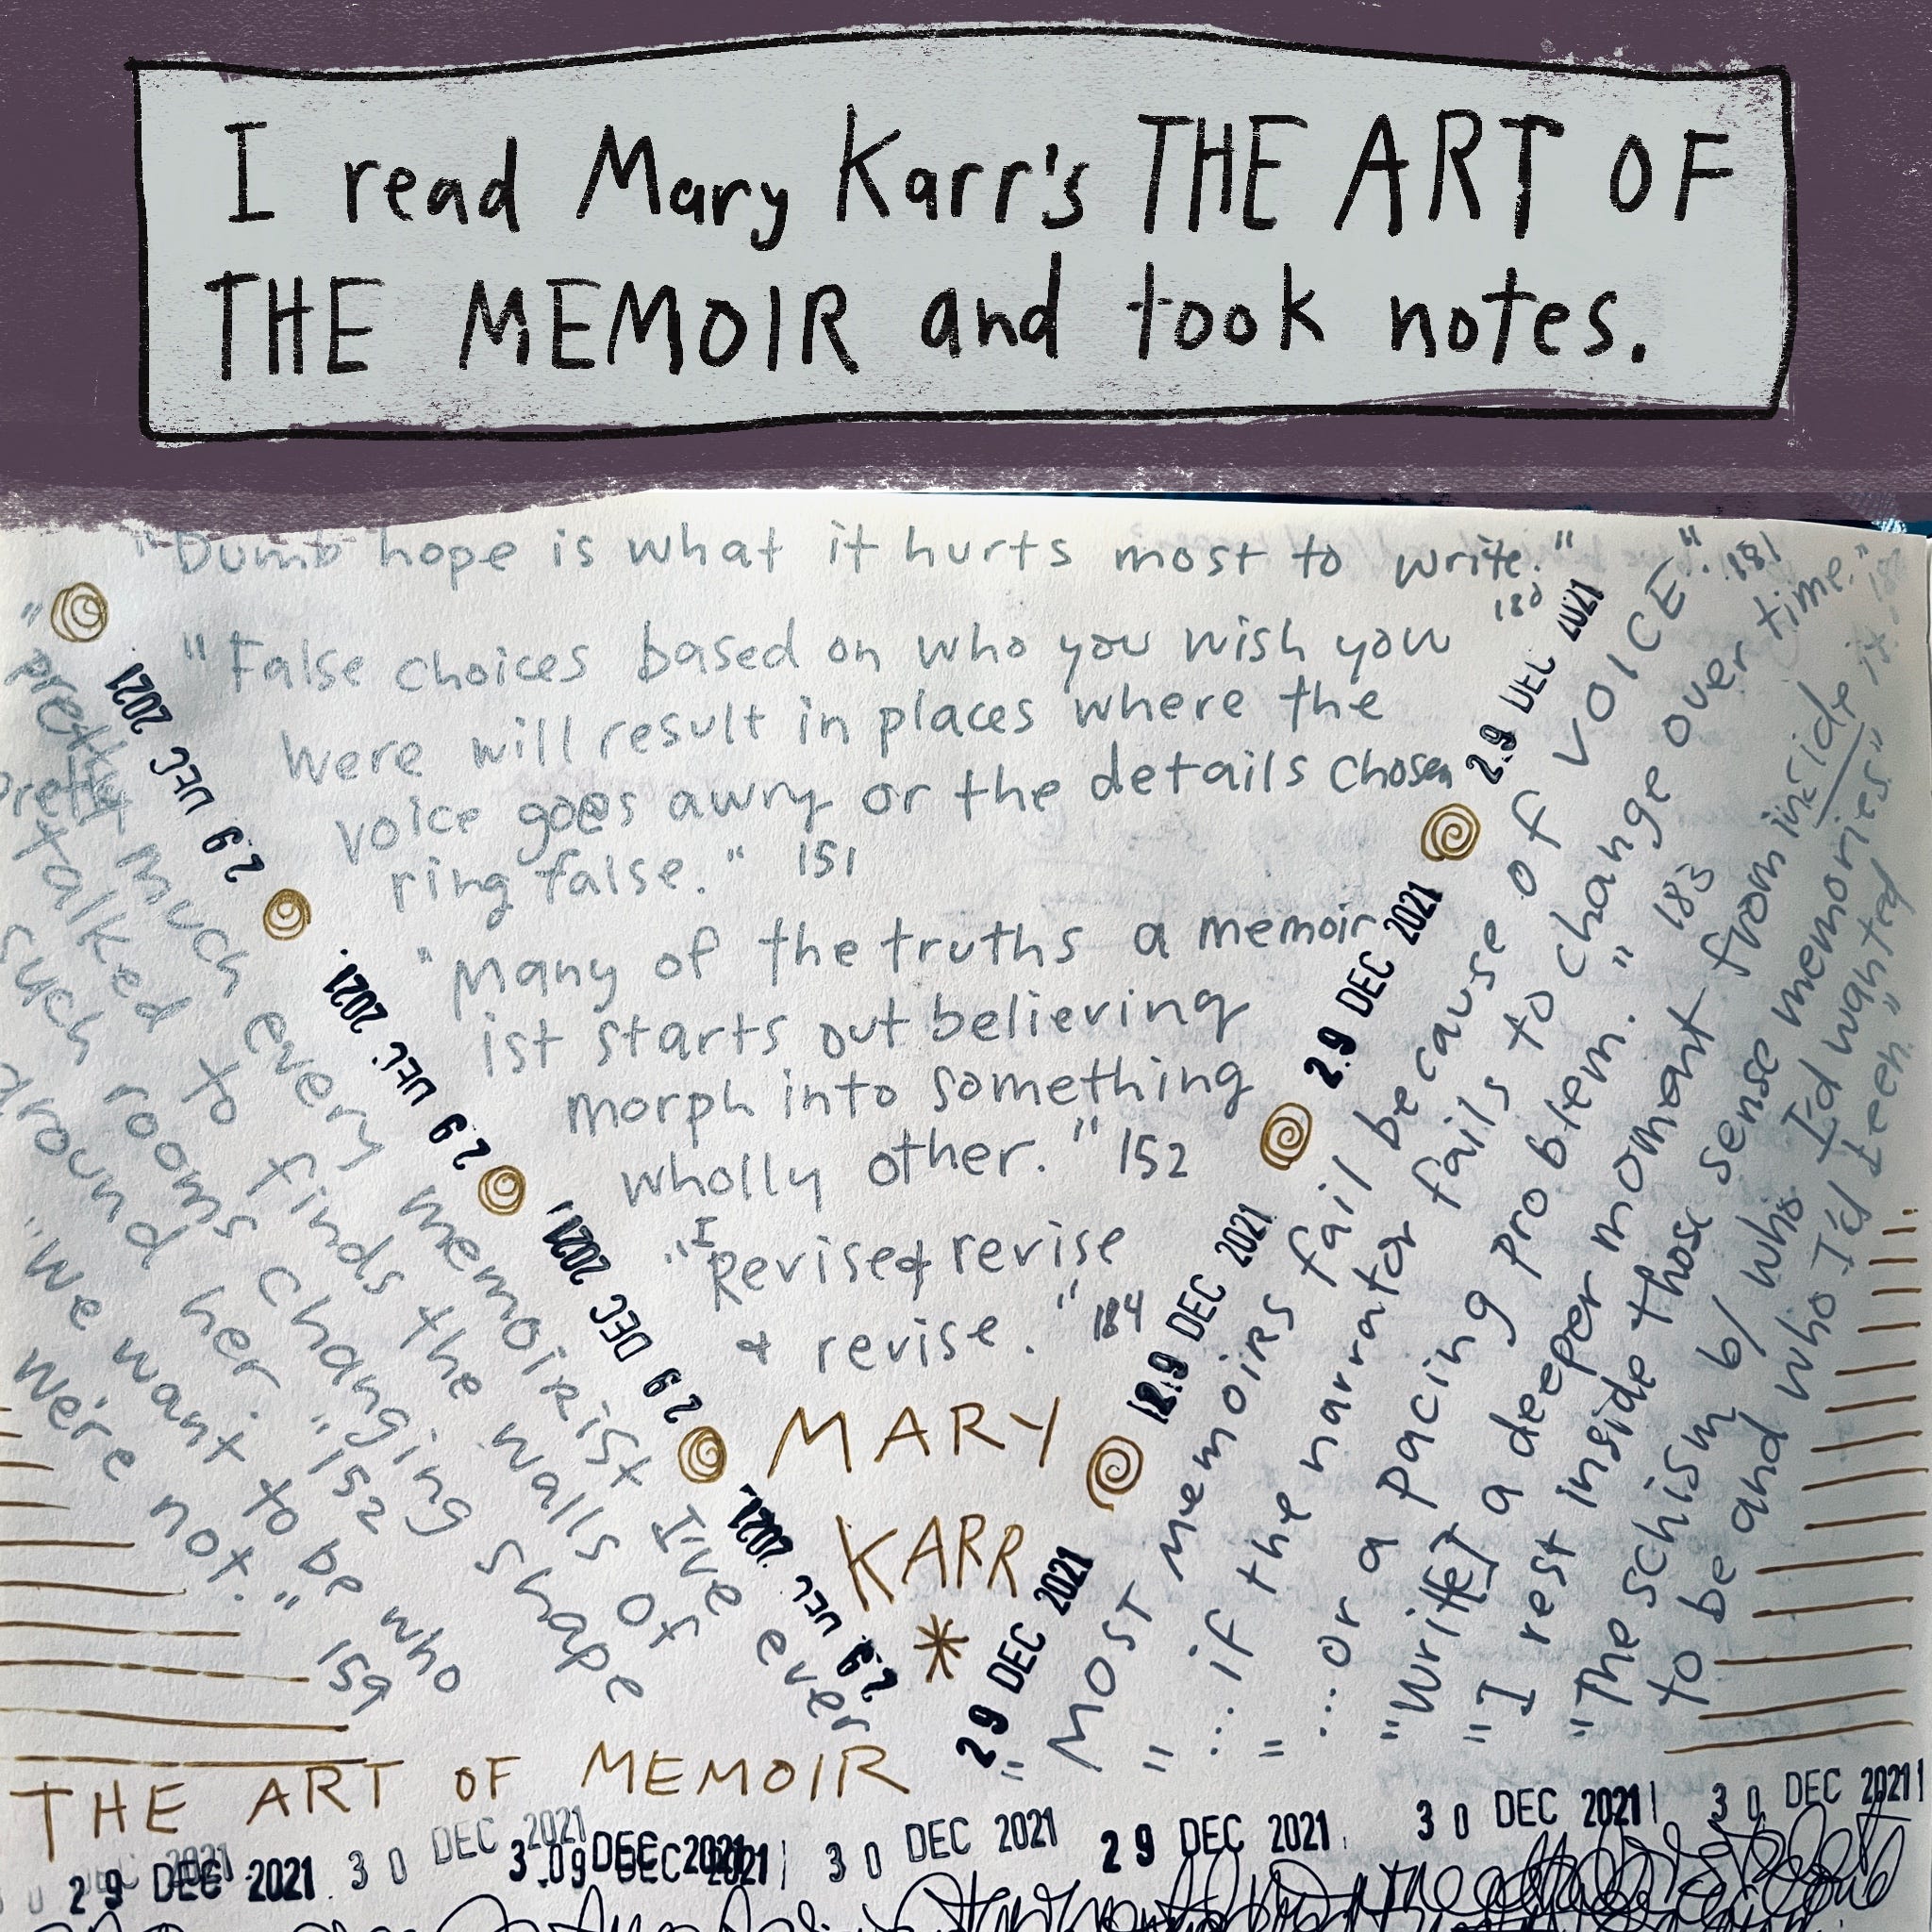 I read Mary Karr's THE ART OF
THE MEMOIR and took notes.
"Dumb hope is what it hurts most to write."
180
"False choices based on who you wish you
were will result in places where the
voice goes awry or the details chosen
ring false." 151
"Many of the truths a memoir
ist starts out believing
morph into something
wholly other." 152
"I Revise & revise
& revise." 184
MARY
KARR
*
"pretty much every memoirist I've ever
talked to finds the walls of
such rooms changing shape
around her." 152
"We want to be who
we're not." 159
29 DEC 2021
29 DEC 2021
29 DEC 2021
29 DEC 2021
29 DEC 2021
29 DEC 2021
29 DEC 2021
29 DEC 2021
"Most memoirs fail because of VOICE." 181
"...if the narrator fails to change over time."
"...or a pacing problem." 183
"Writ[e] a deeper moment from inside it."
"I rest inside those sense memories."
"The schism b/ who I'd wanted
to be and who I'd been."
THE ART OF MEMOIR
29 DEC 2021 30 DEC 2021 30 DEC 2021 29 DEC 2021 30 DEC 2021 30 DEC 2021